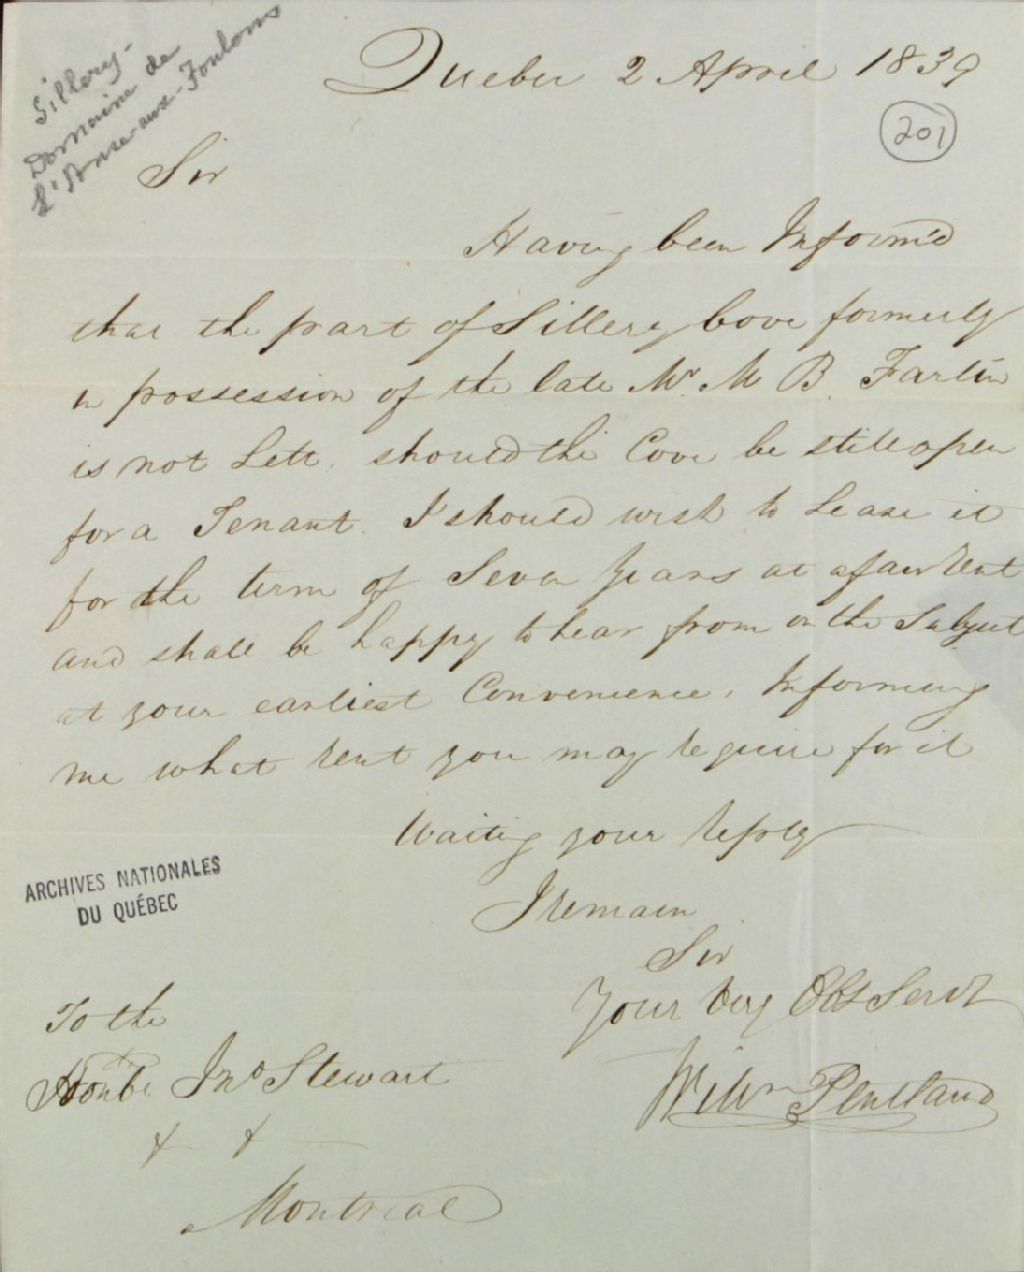 Sillery-
Domaine de
L'Anse-aux-Foulons
Quebec 2 April 1839
201
Sir
Having been Inform'd
that the part of Sillery Cove formerly
in possession of the late Mr. M B. Farlin
is not Lett. should the Cove be still open
for a Tenant. I should wish to Lease it
for the term of Seven Years at a fair Rent
and shall be happy to hear from on the Subject
at your earliest Convenience, Informing
me what Rent you may require for it
Waiting your Reply
I Remain
Sir
Your Very Obt Servt
Willm Pentland
ARCHIVES NATIONALES
DU QUÉBEC
To the
Honble Jno Stewart
Montreal